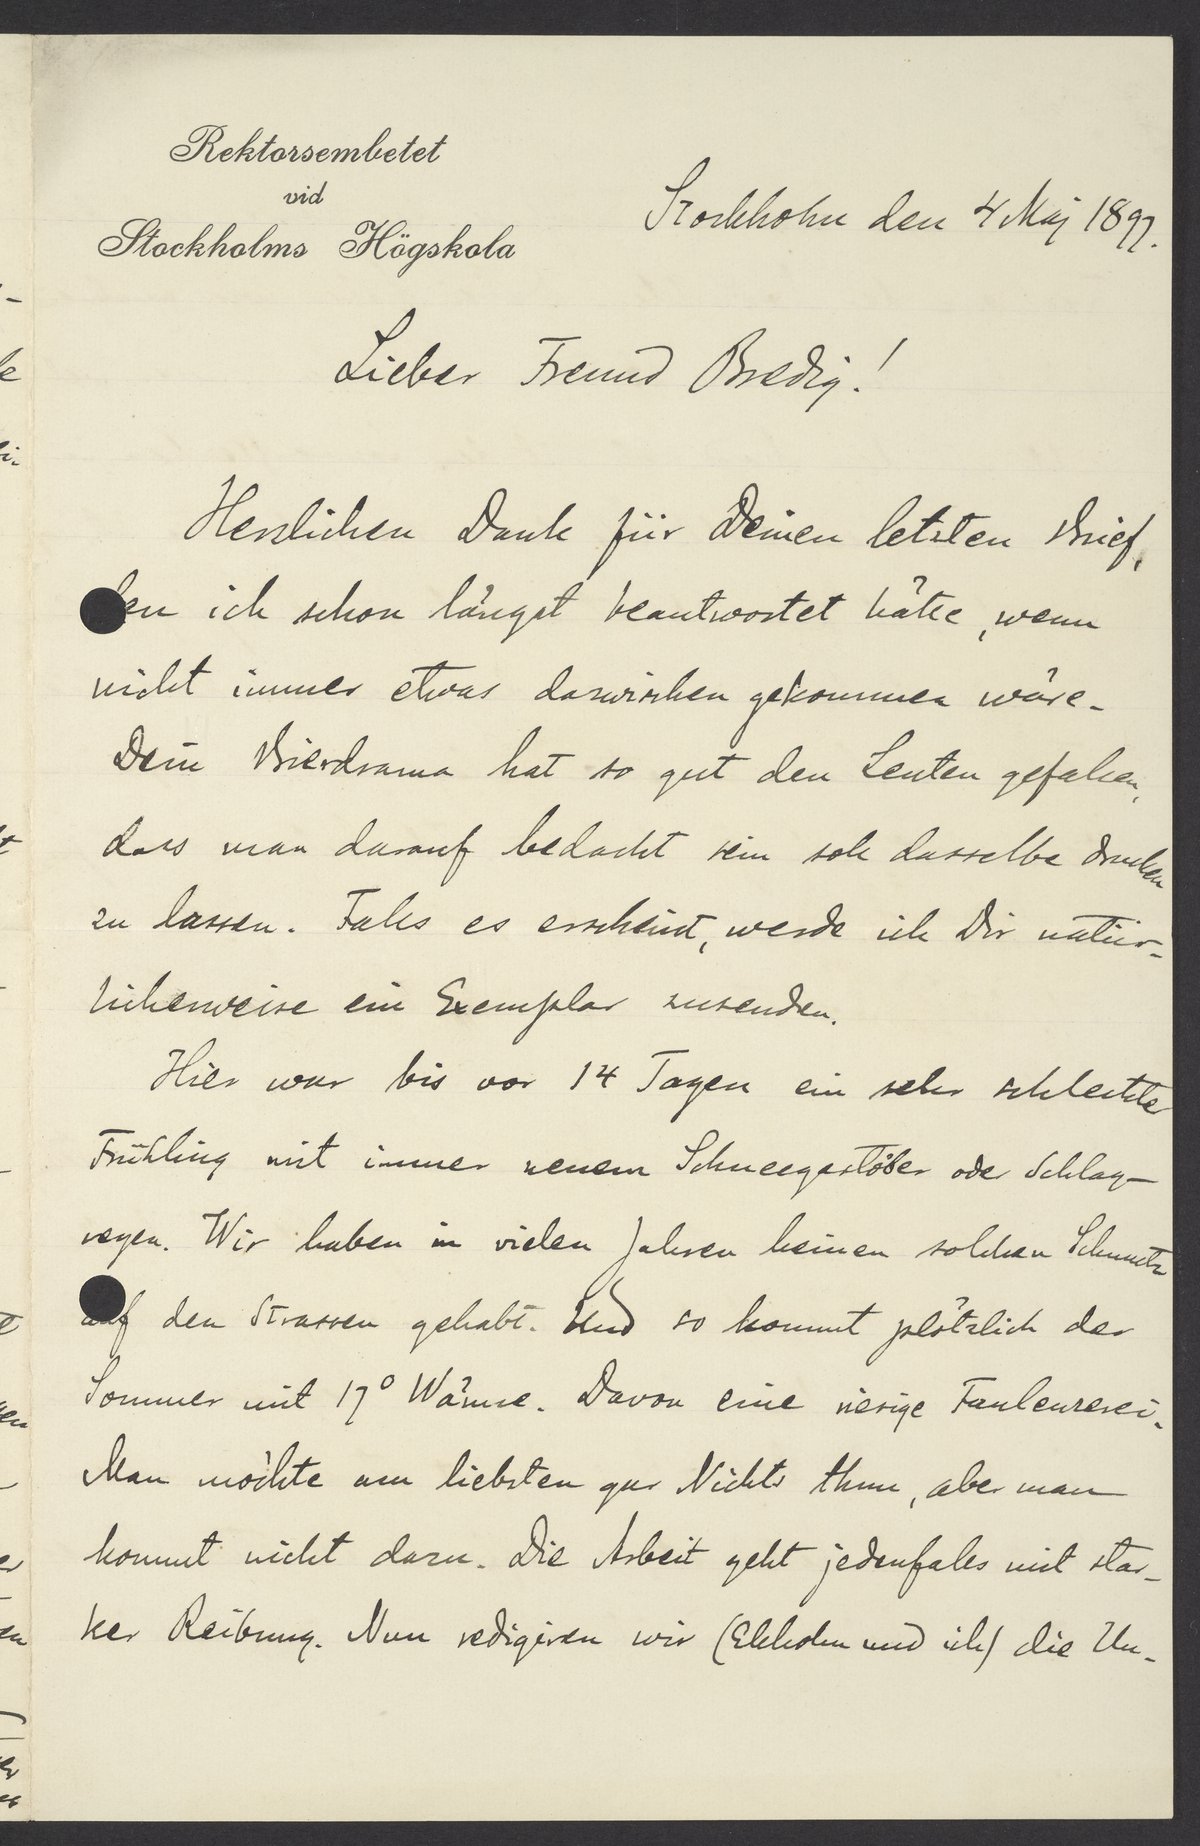 Rektorsembetet
vid
Stockholms Högskola
Stockholm den 4 Maj 1897.
Lieber Freund Bredig!
Herzlichen Dank für Deinen letzten Brief,
den ich schon längst beantwortet hätte, wenn
nicht immer etwas dazwischen gekommen wäre.
Dein Bierdrama hat so gut den Leuten gefallen,
dass man darauf bedacht sein soll dasselbe drucken
zu lassen. Falls es erscheint, werde ich Dir natür-
licherweise ein Exemplar zusenden.
Hier war bis vor 14 Tagen ein sehr schlechter
Frühling mit immer neuem Schneegestöber oder Schlag-
regen. Wir haben in vielen Jahren keinen solchen Schmutz
auf den Strassen gehabt. Und so kommt plötzlich der
Sommer mit 17° Wärme. Davon eine riesige Faulenzerei.
Man möchte am liebsten gar Nichts thun, aber man
kommt nicht dazu. Die Arbeit geht jedenfalls mit star-
ker Reibung. Nun redigiren wir (Ekholm und ich) die Un-